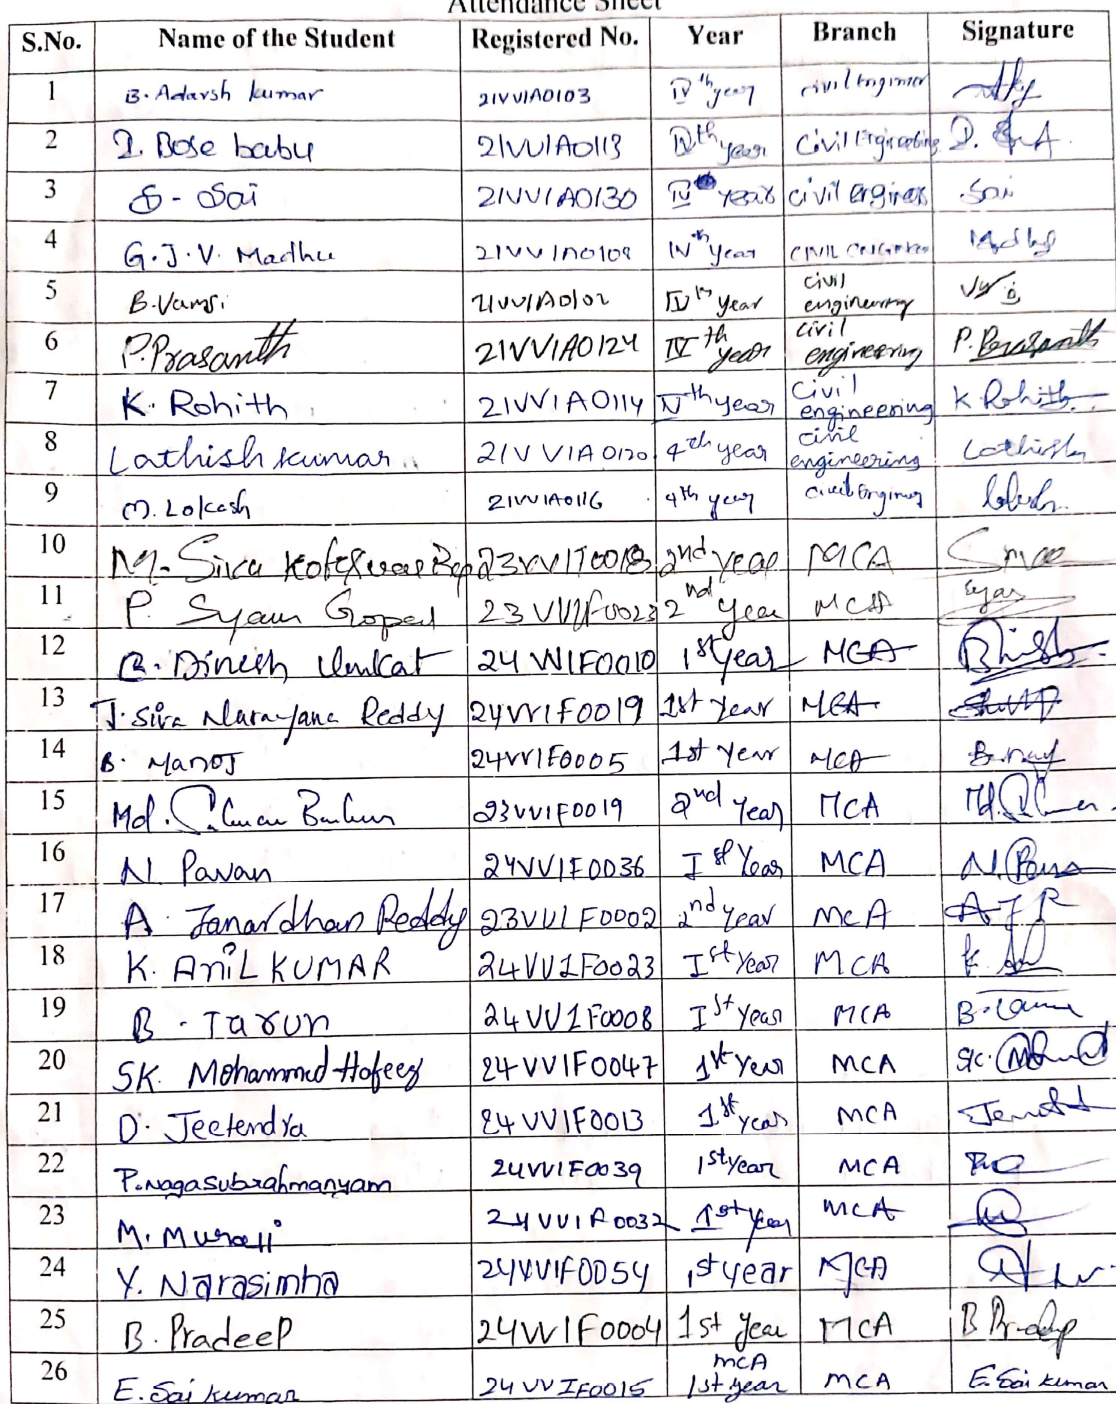 Attendance Sheet
S.No. Name of the Student Registered No. Year Branch Signature
1 B. Adarsh kumar 21VV1A0103 IVth year civil Engineer
2 D. Bose babu 21VV1A0113 IVth year Civil Engineering D.
3 S - Sai 21VV1A0130 IVth year civil engineer Sai
4 G.J.V. Madhu 21VV1A0108 IVth year CIVIL Madhu
5 B.Vamsi 21VV1A0102 IVth year civil engineering
6 P.Prasanth 21VV1A0124 IVth year civil engineering P. Prasanth
7 K. Rohith 21VV1A0114 IVth year Civil engineering K Rohith
8 Lathish kumar 21VV1A0120 4th year civil engineering Lathish
9 M. Lokesh 21VV1A0116 4th year civil Engineer
10 M. Siva 2nd year MCA Siva
11 P. Syam Gopal 23VV1F0023 2nd year MCA Syam
12 B. Dinesh Venkat 24VV1F0010 1st year MCA
13 J. Siva Narayana Reddy 24VV1F0019 1st year MCA
14 B. Manoj 24VV1F0005 1st year MCA
15 Md. 23VV1F0019 2nd Year MCA Md.
16 N. Pavan 24VV1F0036 Ist Year MCA N.
17 A. Janardhan Reddy 23VV1F0002 2nd year MCA AJR
18 K. ANiL KUMAR 24VV1F0023 Ist Year MCA K.
19 B. Tarun 24VV1F0008 Ist Year MCA B.
20 SK. Mohammad Hafeez 24VV1F0047 1st Year MCA SK.
21 D. Jeetendra 24VV1F0013 1st year MCA
22 P.Nagasubrahmanyam 24VV1F0039 1st year MCA
23 M. Muraji 24VV1F0032 1st year MCA
24 Y. Narasimha 24VV1F0054 1st year MCA
25 B. Pradeep 24VV1F0004 1st year MCA B Pradeep
26 E. Sai kumar 24VVIF0015 MCA 1st year MCA E. Sai kumar